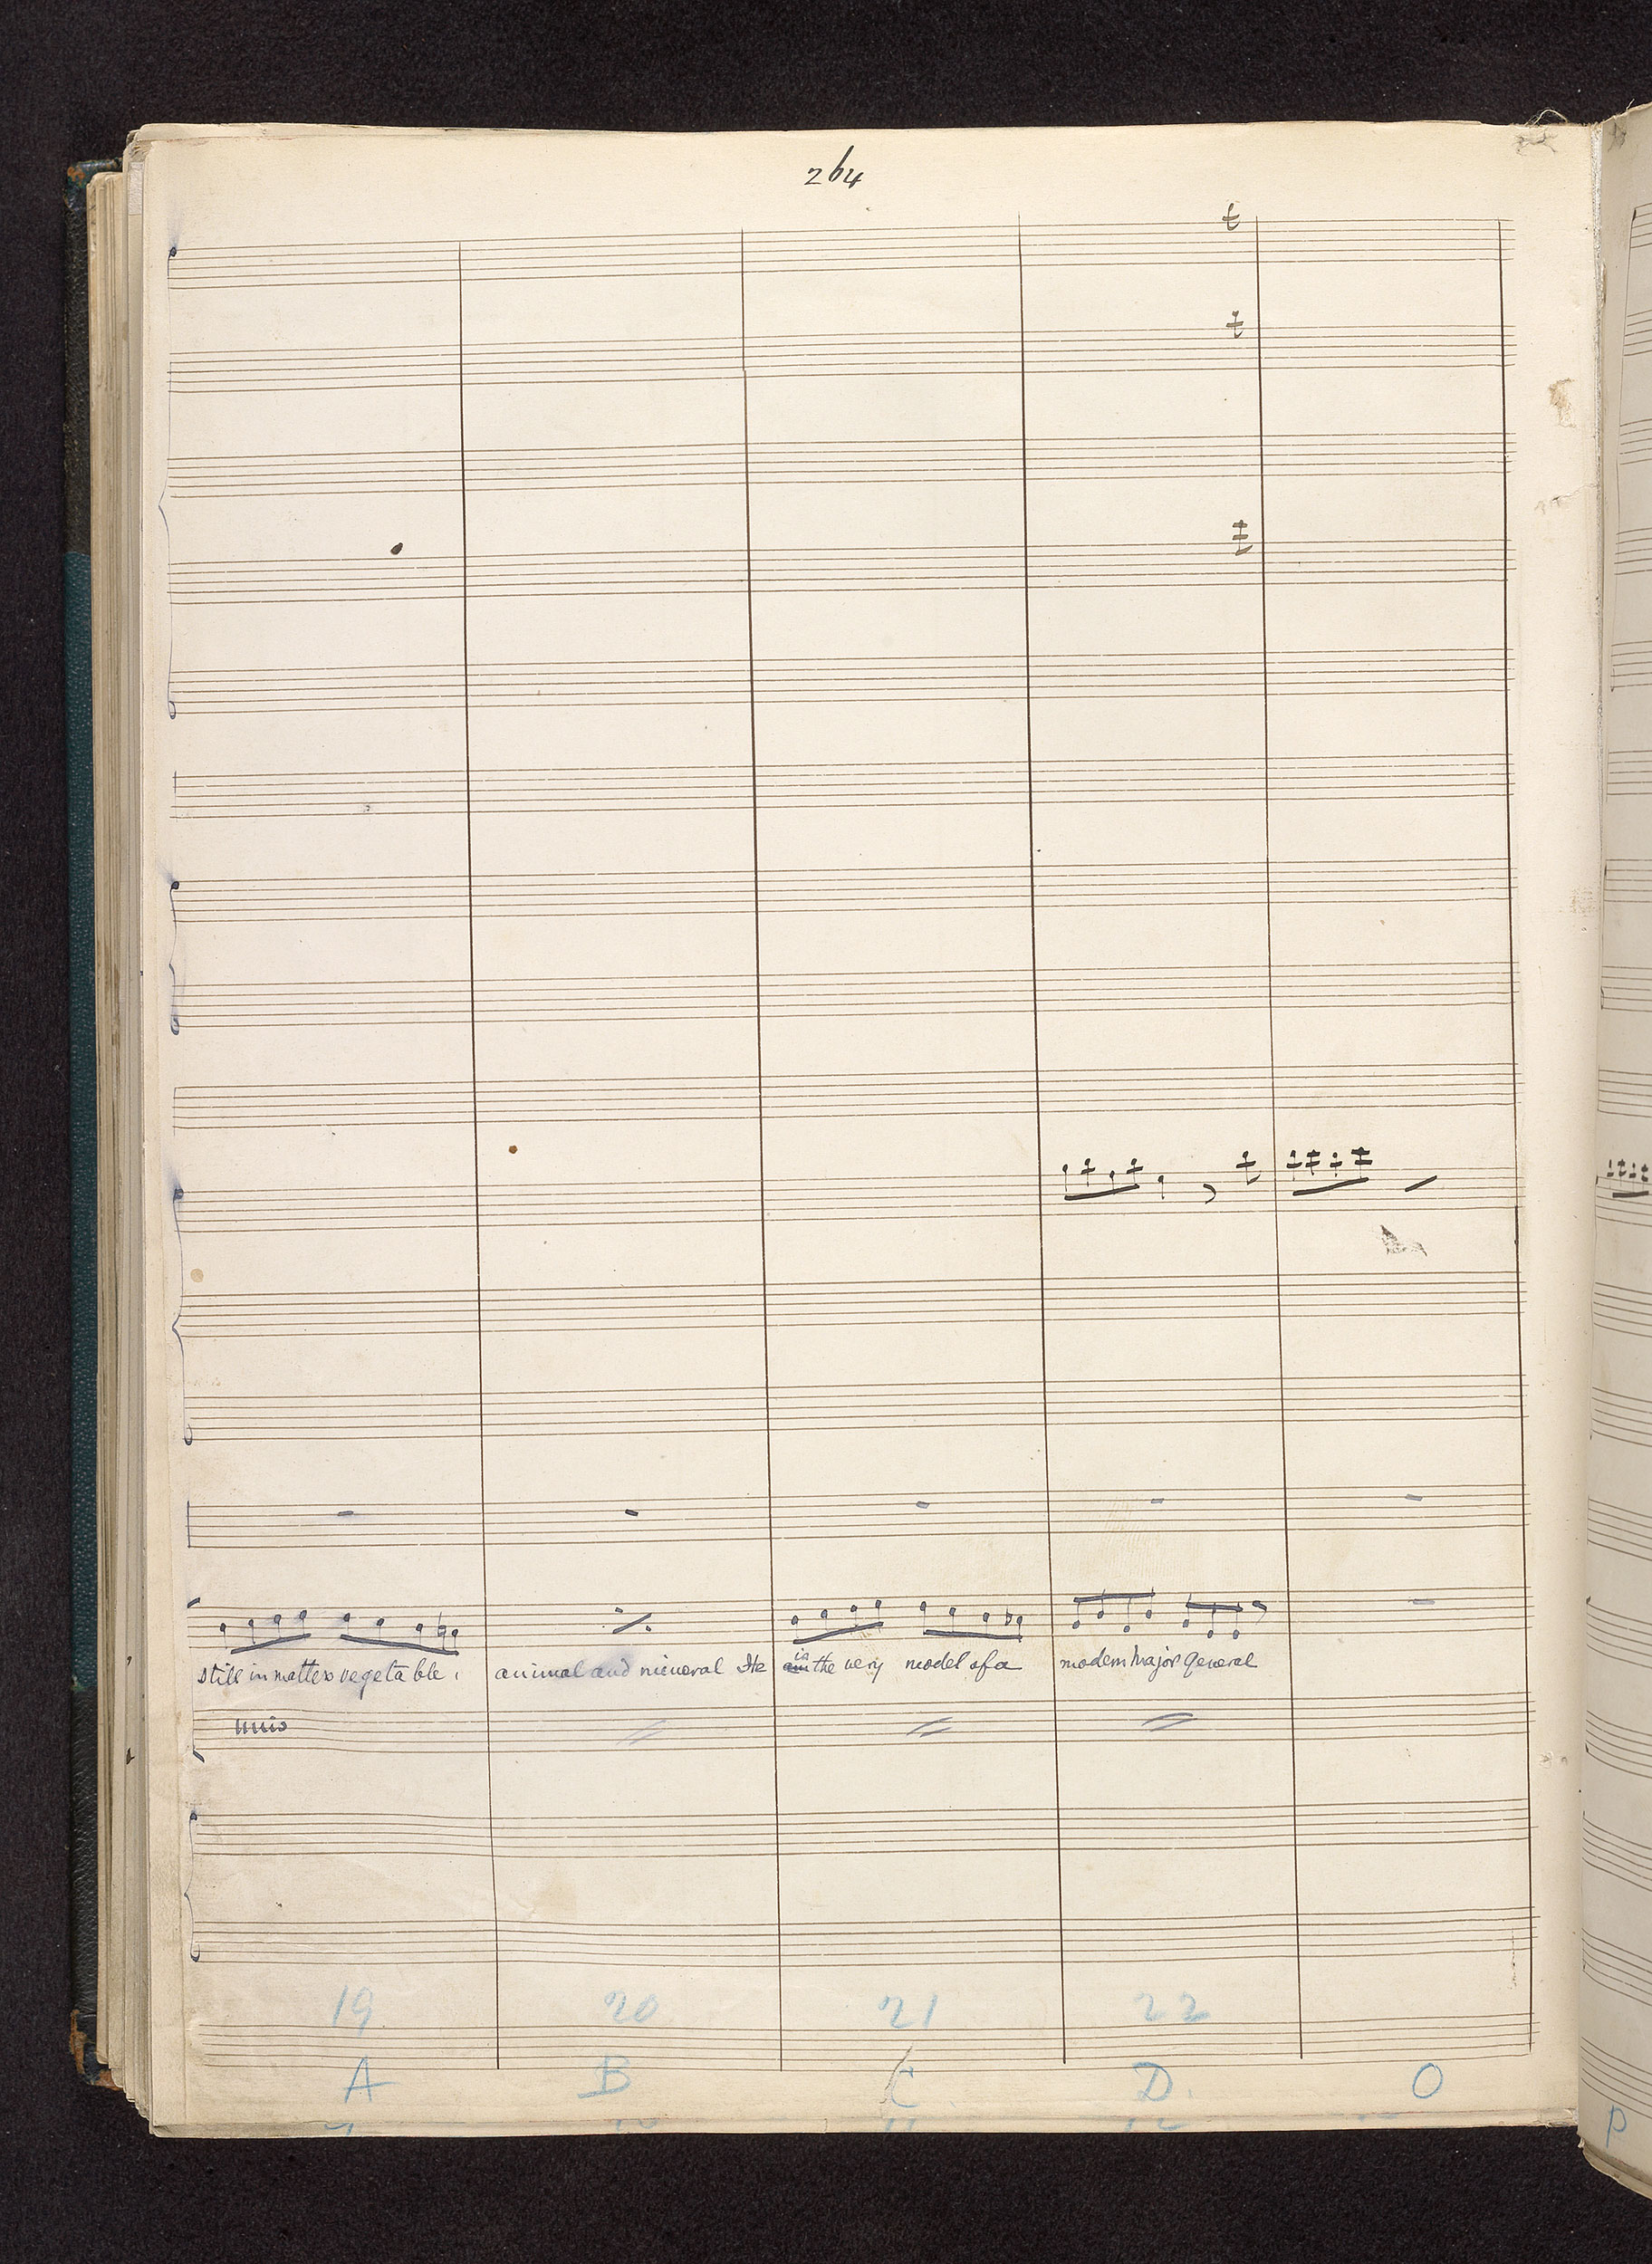 264
still in matters vegetable, animal and mineral He is am the very model of a modern Major General
unis
19 20 21 22
A B C D. O
P